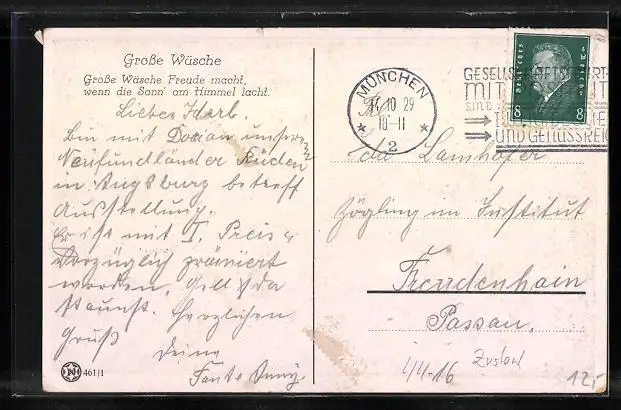 Große Wäsche
Große Wäsche Freude macht,
wenn die Sonn' am Himmel lacht.
Liebes
Bin mit Dorian unserm
Neufundländer Rüden
in Augsburg betreff
Ausstellung.
Er ist mit I. Preis u
Vorzüglich prämiert
worden. Gell Ida
staunst. Herzlichen
Gruß
Deine
Tante
461/1
MÜNCHEN
14.10 29
10-11
2
GESELLSCHAFTSFAHRT
MIT
SIND
UND GENUSSREICH
8 8
Ida Lamhofer
Zögling im Institut
Freudenhain
Passau.
4/4-16
12,-